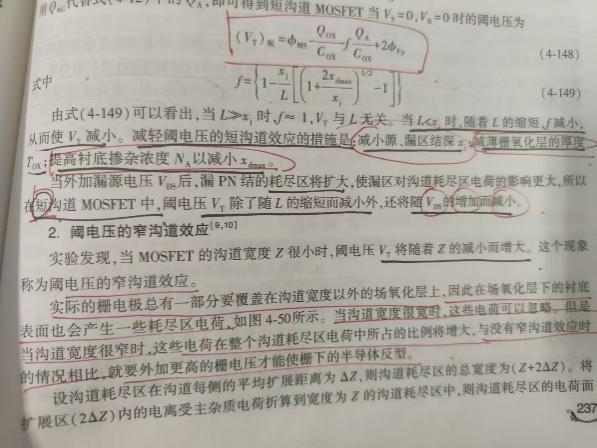 用 Q_AG 代替式(4-12)中的 Q_A,即可得到短沟道 MOSFET 当 V_S=0,V_B=0 时的阈电压为
(V_T)_短=ϕ_MS-Q_OX/C_OX-f Q_A/C_OX+2ϕ_Fp (4-148)
式中
f={1-x_j/L[(1+2x_dmax/x_j)^{1/2}-1]} (4-149)
由式(4-149)可以看出,当 L≫x_j 时,f≈1,V_T 与 L 无关。当 L<x_j 时,随着 L 的缩短,f 减小,
从而使 V_T 减小。减轻阈电压的短沟道效应的措施是:减小源、漏区结深 x_j;减薄栅氧化层的厚度
T_OX;提高衬底掺杂浓度 N_A 以减小 x_dmax。
当外加漏源电压 V_DS 后,漏 PN 结的耗尽区将扩大,使漏区对沟道耗尽区电荷的影响更大,所以
在短沟道 MOSFET 中,阈电压 V_T 除了随 L 的缩短而减小外,还将随 V_DS 的增加而减小。
2. 阈电压的窄沟道效应[9,10]
实验发现,当 MOSFET 的沟道宽度 Z 很小时,阈电压 V_T 将随着 Z 的减小而增大。这个现象
称为阈电压的窄沟道效应。
实际的栅电极总有一部分要覆盖在沟道宽度以外的场氧化层上,因此在场氧化层下的衬底
表面也会产生一些耗尽区电荷,如图 4-50所示。当沟道宽度很宽时,这些电荷可以忽略。但是
当沟道宽度很窄时,这些电荷在整个沟道耗尽区电荷中所占的比例将增大,与没有窄沟道效应时
的情况相比,就要外加更高的栅电压才能使栅下的半导体反型。
设沟道耗尽区在沟道每侧的平均扩展距离为 ΔZ,则沟道耗尽区的总宽度为(Z+2ΔZ)。将
扩展区(2ΔZ)内的电离受主杂质电荷折算到宽度为 Z 的沟道耗尽区中,则沟道耗尽区的电荷面
237